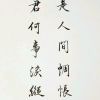 是人間惆悵
君何事淚縱